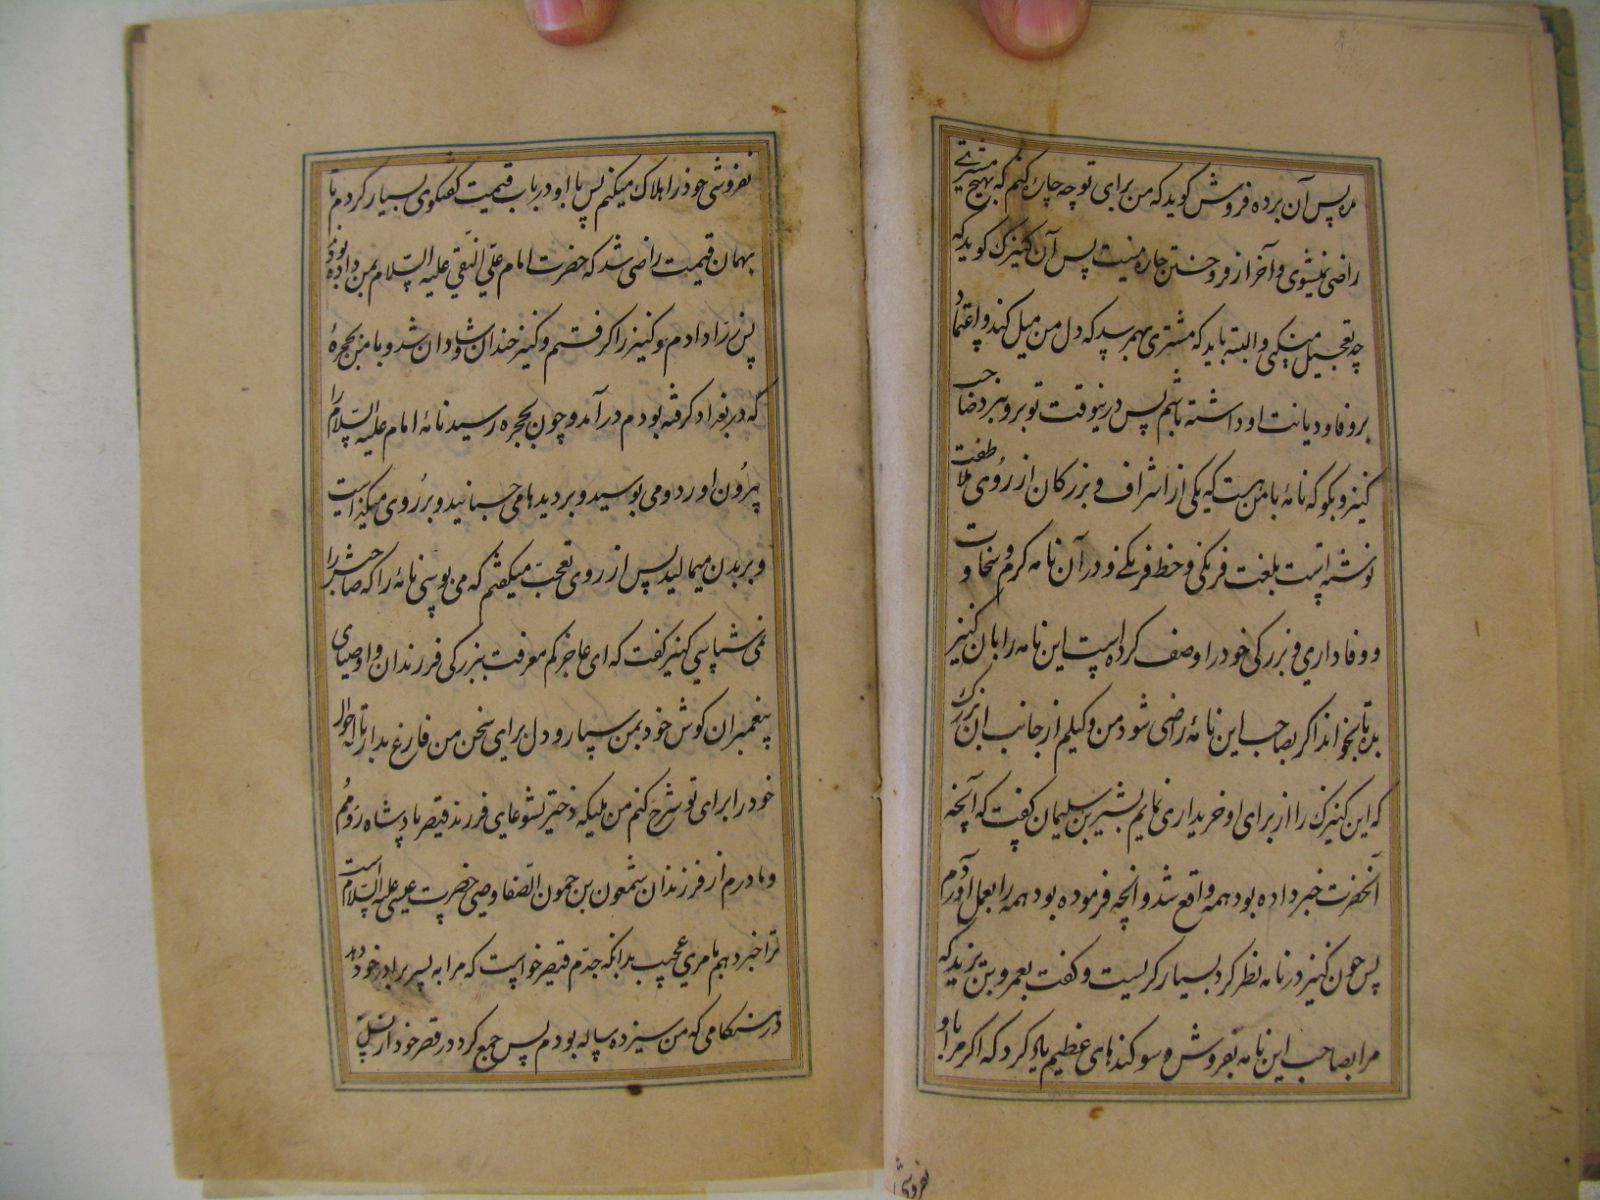 پس آن برده فروش گوید که من برای تو چه چاره کنم که بهیچ مشتری
راضی نمیشوی و آخر از فروختن چاره نیست پس آن کنیزک گوید که
چه تعجیل میکنی و البته باید که مشتری بهم رسد که دل من میل کند و اعتماد
بر وفا و دیانت او داشته باشم پس درینوقت تو برو بنزد صاحب
کنیز و بگو که نامهٔ با من هست که یکی از اشراف و بزرگان از روی ملاطفت
نوشته است بلغت فرنگی و خط فرنگی و در آن نامه کرم و سخاوت
و وفاداری و بزرگی خود را وصف کرده است این نامه را بان کنیز
بده تا بخواند اگر بصاحب این نامه راضی شود من وکیلم از جانب آن بزرگ
که این کنیزک را از برای او خریداری نمایم بشیر بن سلیمان گفت که آنچه
آنحضرت خبر داده بود همه واقع شد و آنچه فرموده بود همه را بعمل آوردم
پس چون کنیز در نامه نظر کرد بسیار گریست و گفت بعمرو بن یزید که
مرا بصاحب این نامه بفروش و سوگندهای عظیم یاد کرد که اگر مرا باو
بفروشی
بفروشی خود را هلاک میکنم پس با او در باب قیمت گفتگوی بسیار کردم تا
بهمان قیمت راضی شد که حضرت امام علی النقی علیه السلام بمن داده بود
پس زر را دادم و کنیز را گرفتم و کنیز خندان و شادان شد و با من بحجرهٔ
که در بغداد گرفته بودم در آمد و چون بحجره رسید نامهٔ امام علیه السلام را
بیرون آورد و می بوسید و بر دیدها می چسبانید و بر روی میگذاشت
و بر بدن میمالید پس از روی تعجب میگفتم که می بوسی نامهٔ را که صاحبش را
نمی شناسی کنیز گفت که ای عاجز کم معرفت ببزرگی فرزندان و اوصیای
پیغمبران گوش خود بمن سپار و دل برای سخن من فارغ بدار تا احوال
خود را برای تو شرح کنم من ملیکه دختر یشوعای فرزند قیصر پادشاه رومم
و مادرم از فرزندان شمعون بن حمون الصفا وصی حضرت عیسی علیه السلام است
ترا خبر دهم بامری عجیب بدانکه جدم قیصر خواست که مرا به پسر برادر خود دهد
در هنگامی که من سیزده ساله بودم پس جمع کرد در قصر خود از نسل